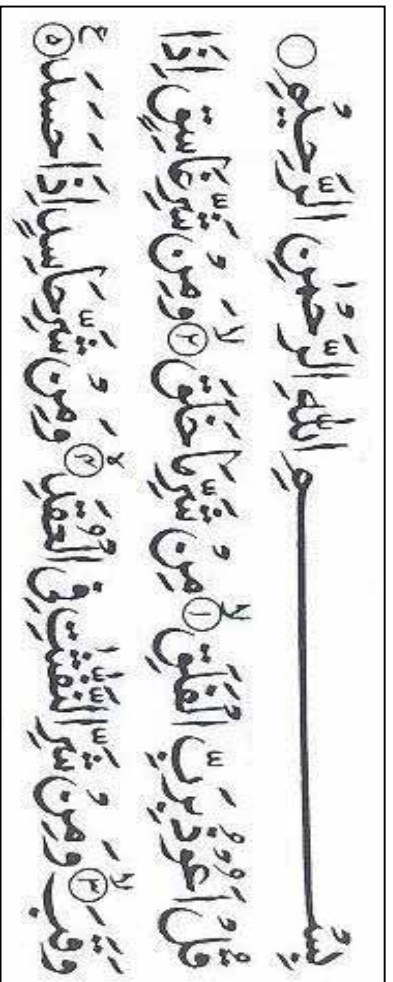 بِسْمِ اللّٰهِ الرَّحْمٰنِ الرَّحِيْمِ ○
قُلْ اَعُوْذُ بِرَبِّ الْفَلَقِ ۙ﴿۱﴾ مِنْ شَرِّ مَا خَلَقَ ۙ﴿۲﴾ وَمِنْ شَرِّ غَاسِقٍ اِذَا
وَقَبَ ۙ﴿۳﴾ وَمِنْ شَرِّ النَّفّٰثٰتِ فِى الْعُقَدِ ۙ﴿۴﴾ وَمِنْ شَرِّ حَاسِدٍ اِذَا حَسَدَ ﴿۵﴾ ع